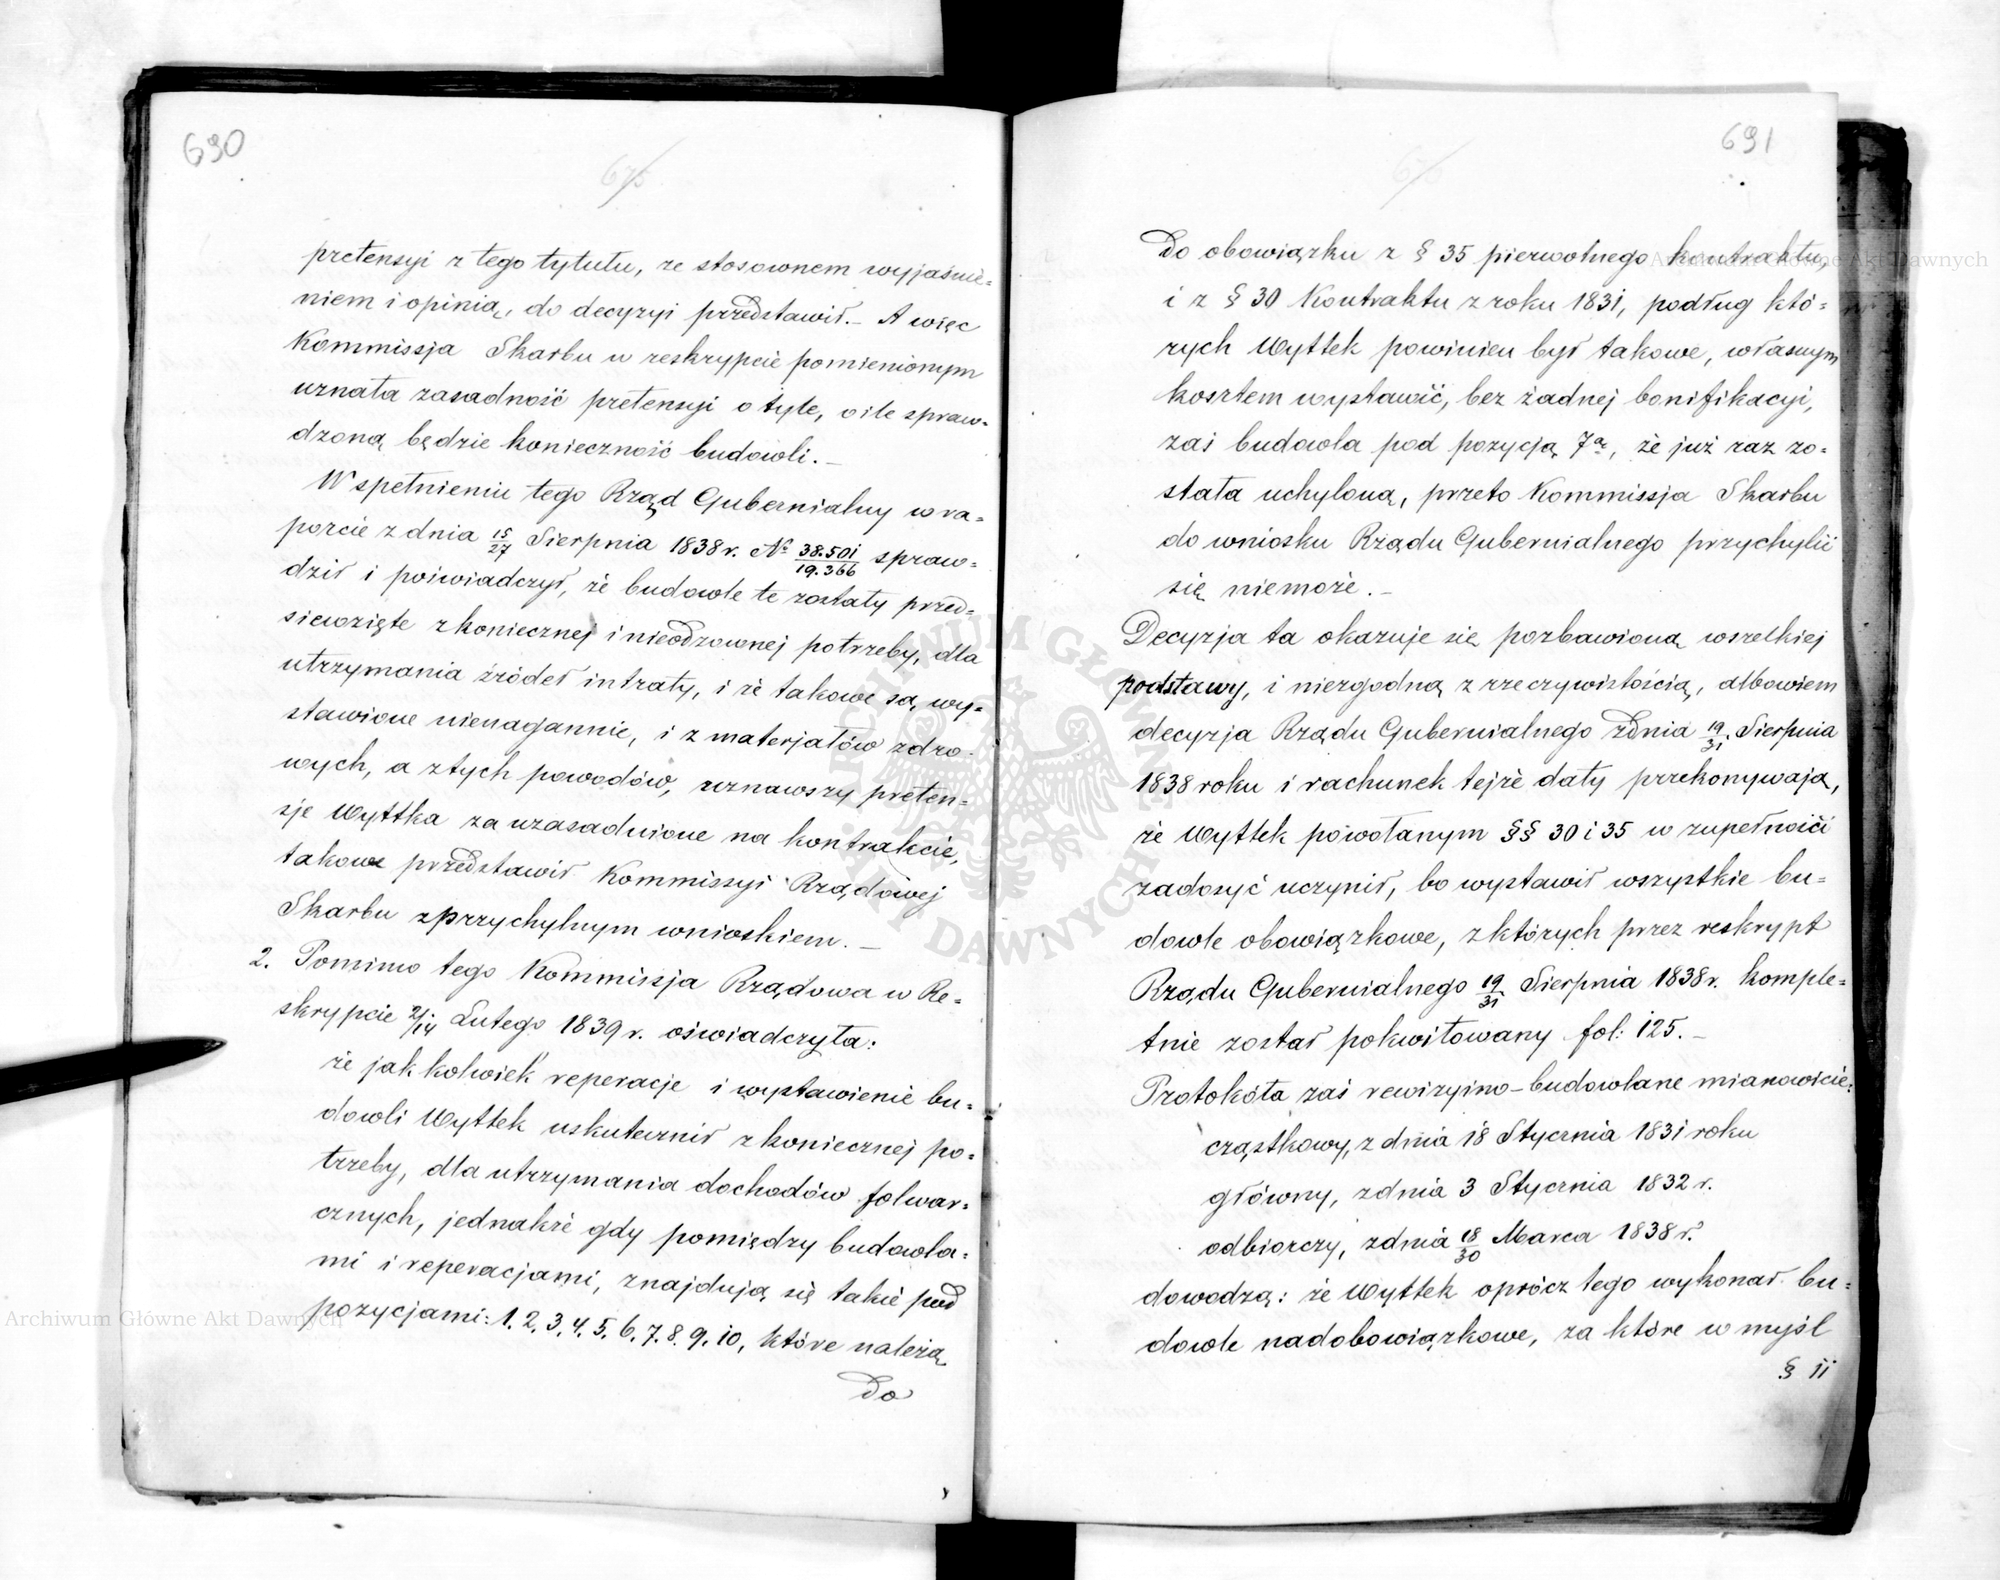 690
pretensyi z tego tytułu, ze stosownem wyjaśnie=
niem i opinią, do decyzyi przedstawił.— A więc
Kommissja Skarbu w reskrypcie pomienionym
uznała zasadność pretensyi o tyle, o ile spraw=
dzoną będzie konieczność budowli.—
W spełnieniu tego Rząd Gubernialny w ra=
porcie z dnia 15/27 Sierpnia 1838 r. No 38.501/19.366 spraw=
dził i poświadczył, że budowle te zostały przed=
siewzięte z koniecznej i nieodzownej potrzeby, dla
utrzymania źródeł intraty, i że takowe są wy=
stawione nienagannie, i z materjałów zdro=
wych, a z tych powodów, uznawszy preten=
sje Wyttka za uzasadnione na kontrakcie,
takowe przedstawił Kommissyi Rządowej
Skarbu z przychylnym wnioskiem.—
2. Pomimo tego Kommissja Rządowa w Re=
skrypcie 2/14 Lutego 1839 r. oświadczyła:
że jakkolwiek reperacje i wystawienie bu=
dowli Wyttek uskutecznił z koniecznej po=
trzeby, dla utrzymania dochodów folwar=
cznych, jednakże gdy pomiędzy budowla=
mi i reperacjami, znajdują się takie pod
pozycjami: 1. 2. 3. 4. 5. 6. 7. 8. 9. 10, które należą
do
691
do obowiązku z § 35 pierwotnego kontraktu,
i z § 30 Kontraktu z roku 1831, podług któ=
rych Wyttek powinien był takowe, własnym
kosztem wystawić, bez żadnej bonifikacyi,
zaś budowla pod pozycją 7ą, że już raz zo=
stała uchyloną, przeto Kommissja Skarbu
do wniosku Rządu Gubernialnego przychylić
się niemoże.—
Decyzja ta okazuje się pozbawioną wszelkiej
podstawy, i niezgodną z rzeczywistością, albowiem
decyzja Rządu Gubernialnego z dnia 19/31 Sierpnia
1838 roku i rachunek tejże daty przekonywają,
że Wyttek powołanym §§ 30 i 35 w zupełności
zadosyć uczynił, bo wystawił wszystkie bu=
dowle obowiązkowe, z których przez reskrypt
Rządu Gubernialnego 19/31 Sierpnia 1838 r. komple=
tnie został pokwitowany fol: 125.—
Protokóła zaś rewizyino-budowlane mianowicie:
cząstkowy, z dnia 18 Stycznia 1831 roku
główny, z dnia 3 Stycznia 1832 r.
odbiorczy, z dnia 18/30 Marca 1838 r.
dowodzą: że Wyttek oprócz tego wykonał bu=
dowle nadobowiązkowe, za które w myśl
§ 11
Archiwum Główne Akt Dawnych
Archiwum Główne Akt Dawnych
ARCHIWUM GŁÓWNE AKT DAWNYCH